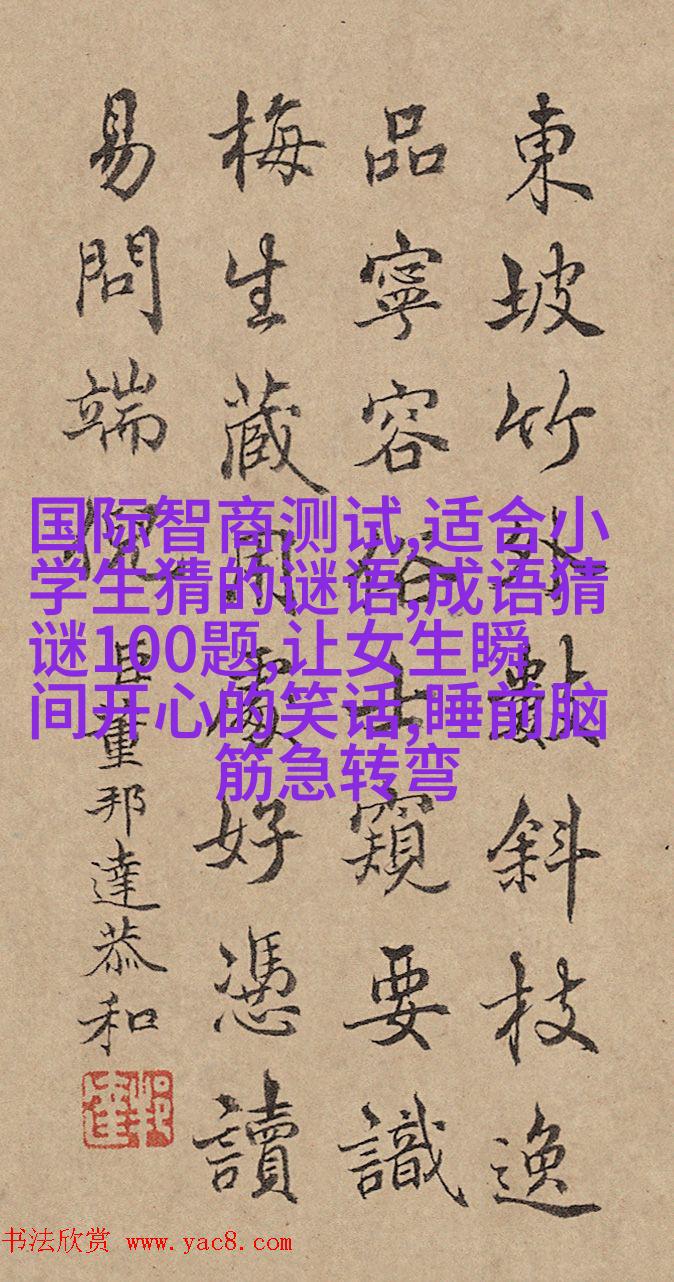 東坡竹外數斜枝逸
品寧容俗士窺要識
梅生蔵用處好憑讀
易問端倪
臣董邦達恭和
国际智商测试,适合小
学生猜的谜语,成语猜
谜100题,让女生瞬
间开心的笑话,睡前脑
筋急转弯
书法欣赏 www.yac8.com